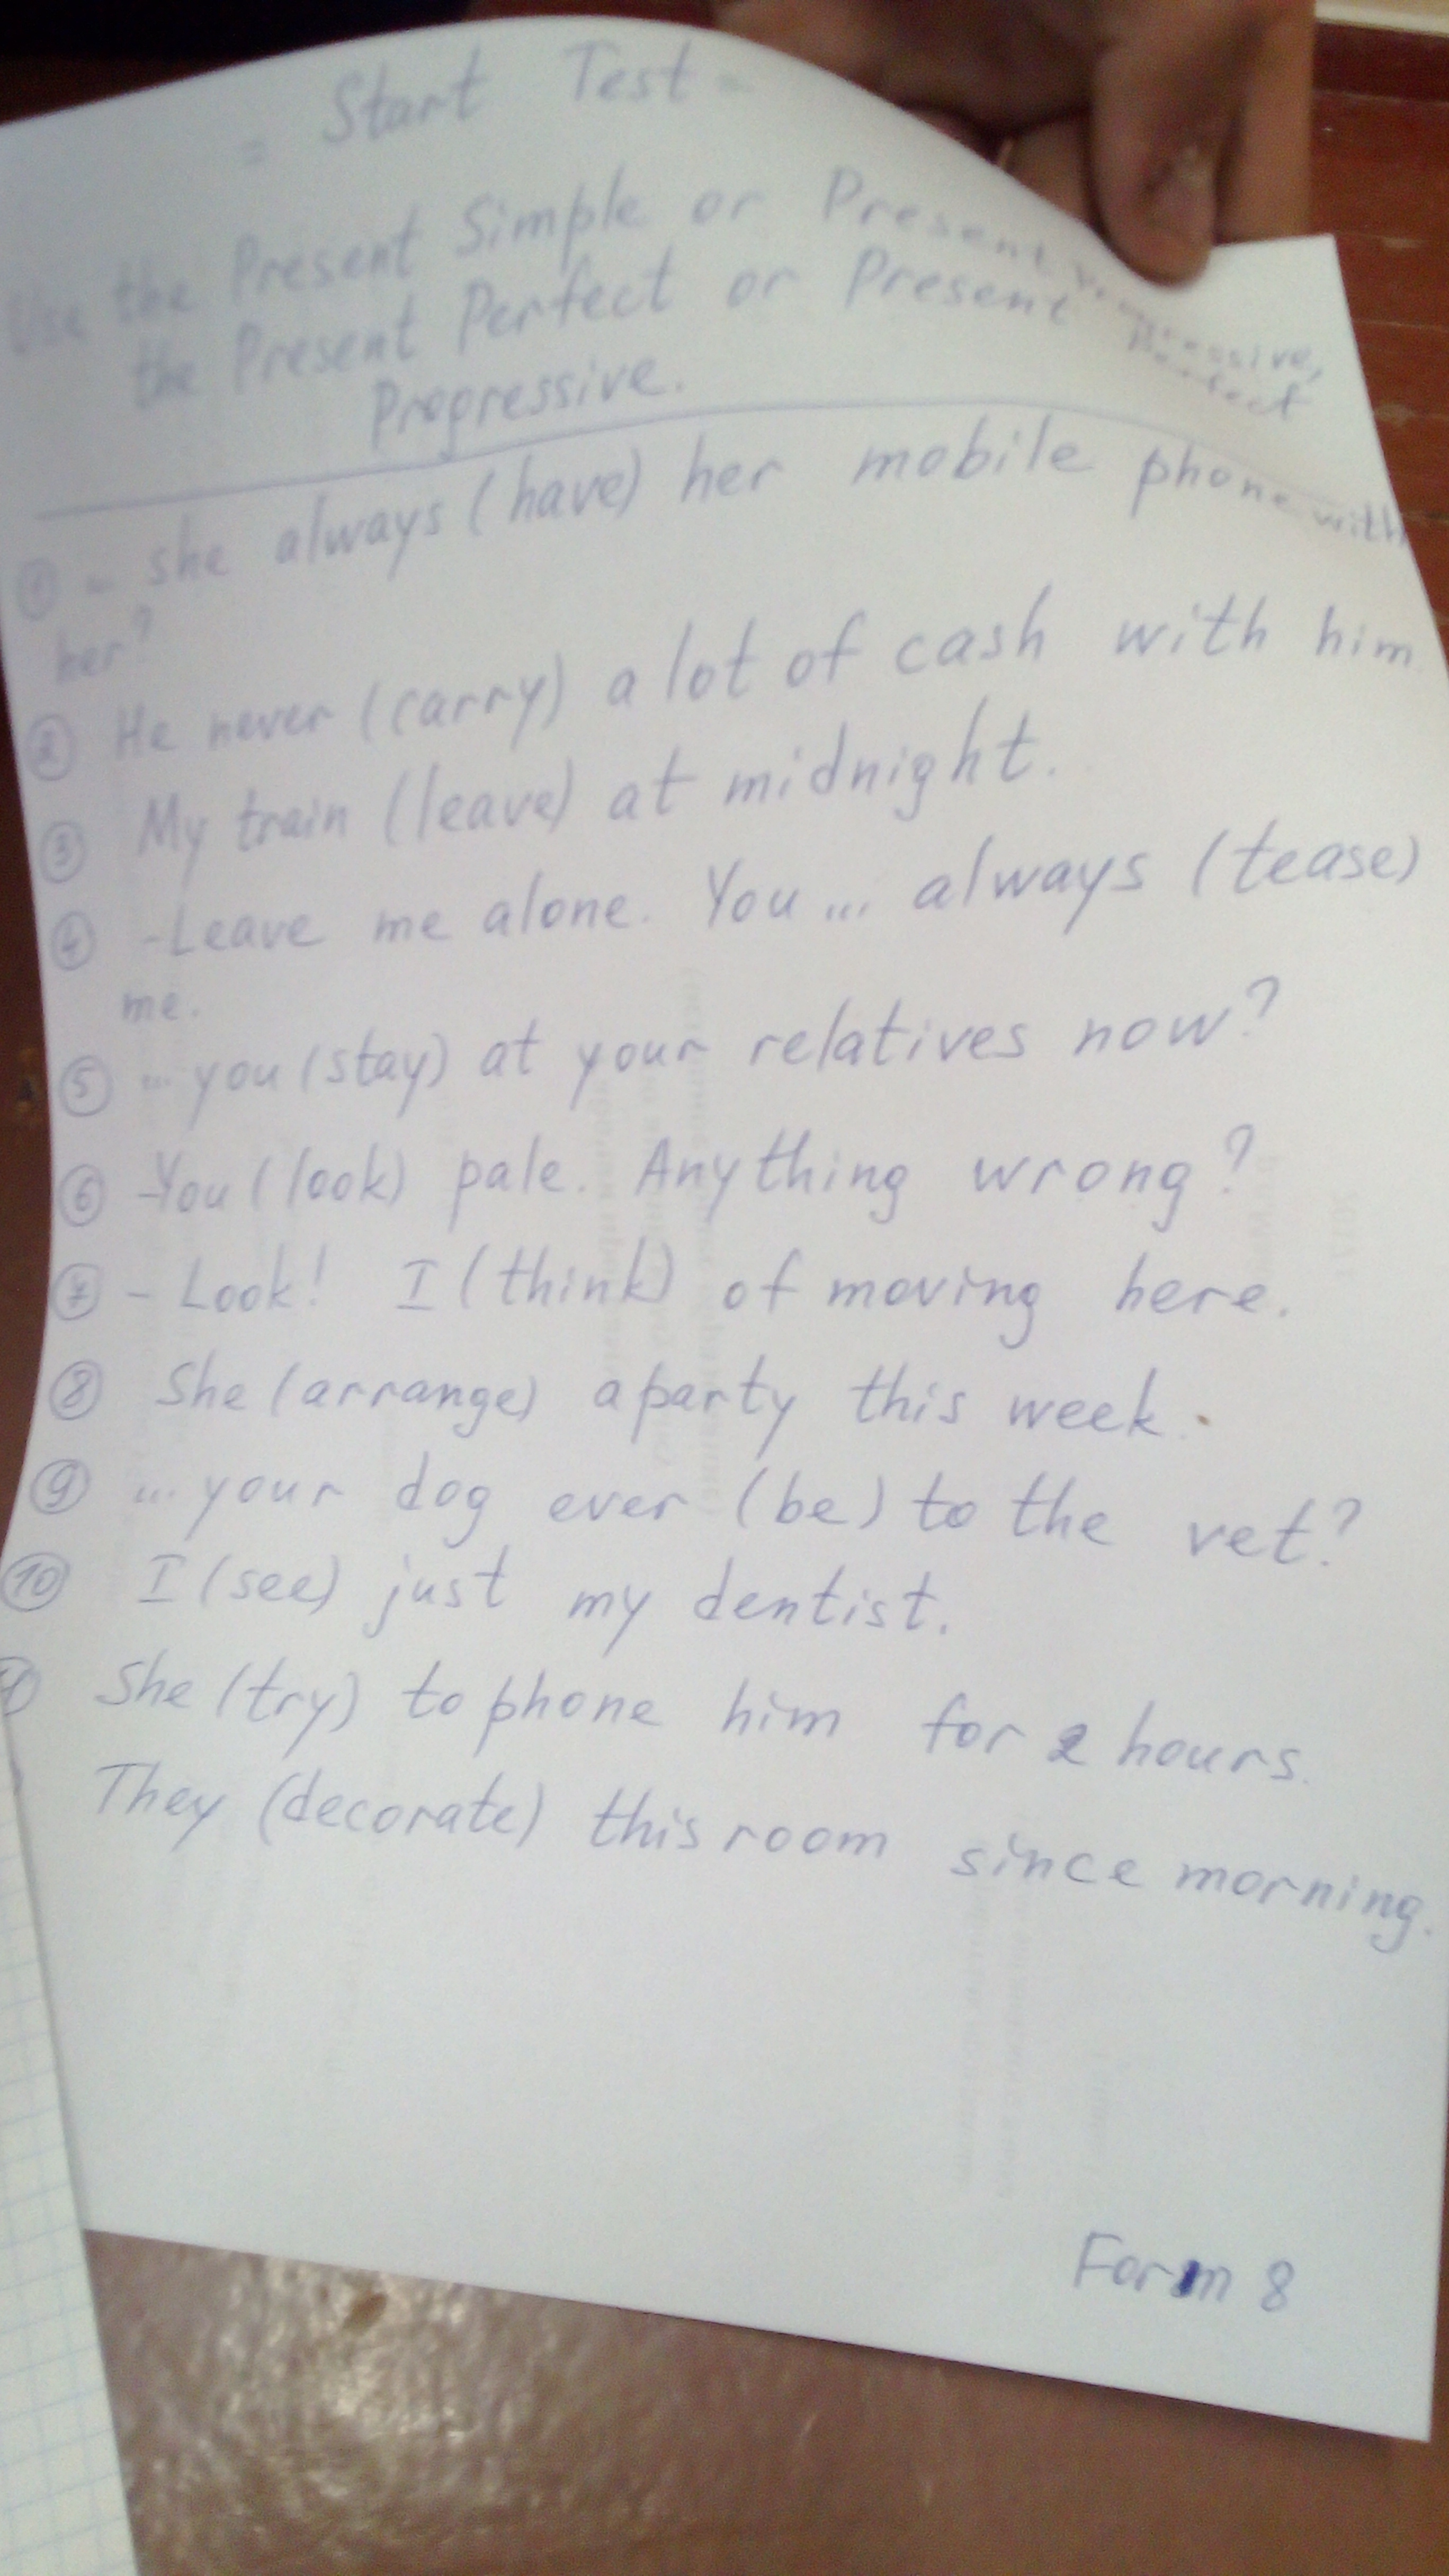 = Start Test =
Use the Present Simple or Present Progressive,
the Present Perfect or Present Perfect
Progressive.
① ... she always (have) her mobile phone with
her?
② He never (carry) a lot of cash with him.
③ My train (leave) at midnight.
④ -Leave me alone. You ... always (tease)
me.
⑤ ... you (stay) at your relatives now?
⑥ -You (look) pale. Anything wrong?
⑦ - Look! I (think) of moving here.
⑧ She (arrange) a party this week.
⑨ ... your dog ever (be) to the vet?
⑩ I (see) just my dentist.
She (try) to phone him for 2 hours.
They (decorate) this room since morning.
Form 8